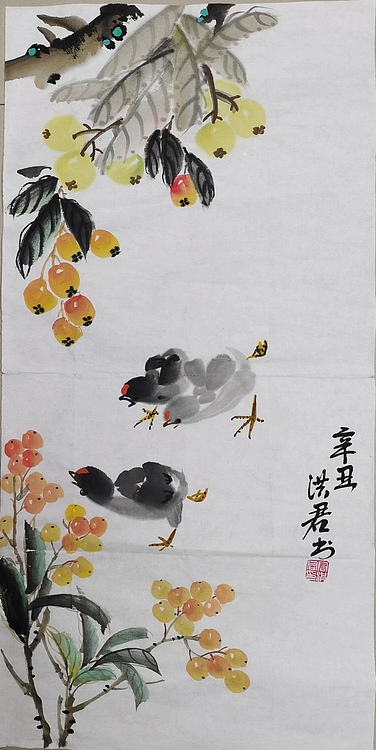 辛丑
洪君书